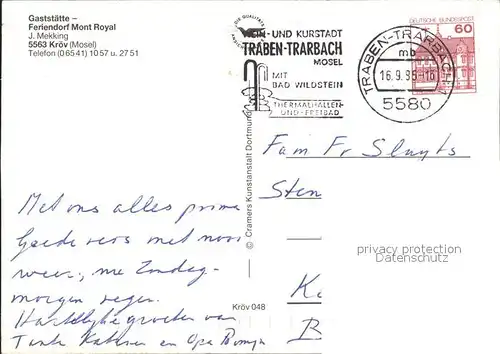 Gaststätte –
Feriendorf Mont Royal
J. Mekking
5563 Kröv (Mosel)
Telefon (0 65 41) 10 57 u. 27 51
WEIN- UND KURSTADT
TRABEN-TRARBACH
MOSEL
MIT
BAD WILDSTEIN
THERMALHALLEN-
UND -FREIBAD
TRABEN-TRARBACH
mb
16.9.86-16
5580
DEUTSCHE BUNDESPOST
60
© Cramers Kunstanstalt Dortmund
Fam Fr Sluyts
Sten
K
B
privacy protection
Datenschutz
Met ons alles prima
Goede reis met mooi
weer, me Zondag-
morgen regen.
Hartelijke groeten van
Tante Katrien en Opa
Kröv 048